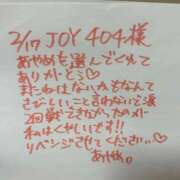 2/17 JOY 404様
あやめを選んでくれて
ありがとう♡
またねはないかもなんて
さびしいこと言わないで涙
2回戦できなかったの〆
私はくやしいです!!
リベンジさせてください♡
あやめ。